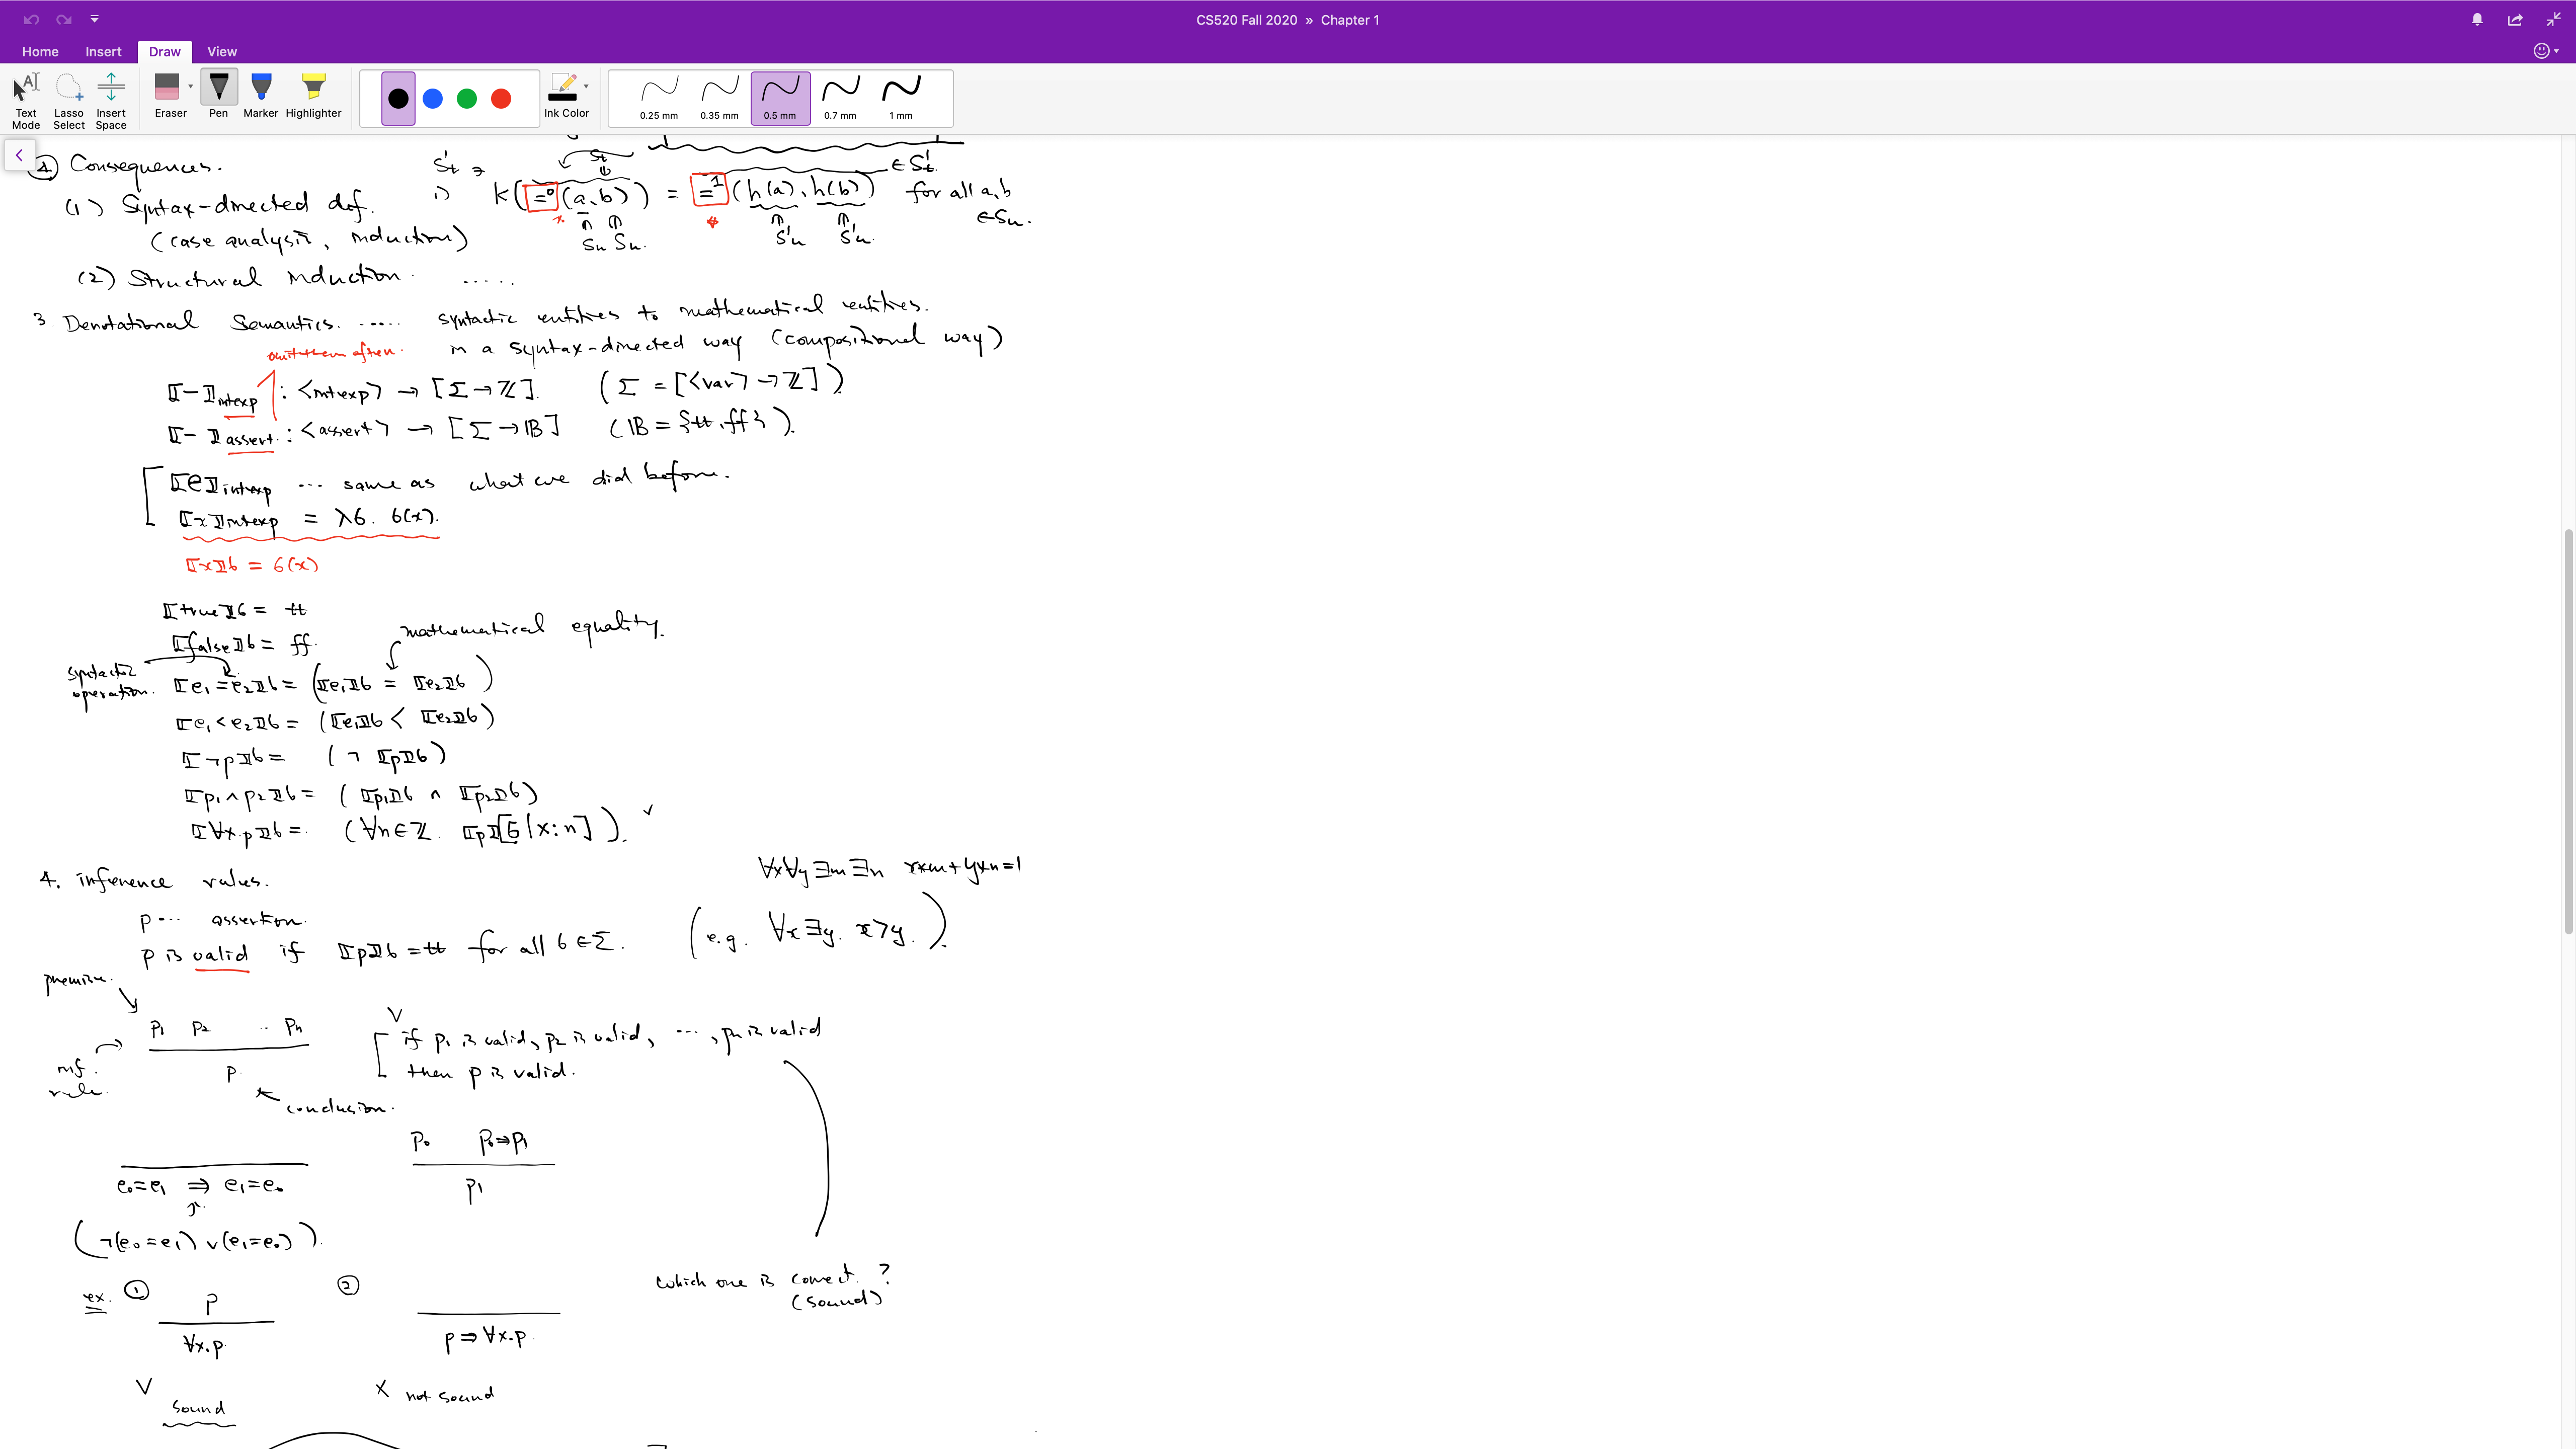 CS520 Fall 2020 » Chapter 1
Home Insert Draw View
Text Mode
Lasso Select
Insert Space
Eraser
Pen
Marker
Highlighter
Ink Color
0.25 mm
0.35 mm
0.5 mm
0.7 mm
1 mm
④ Consequences.
(1) Syntax-directed def.
(case analysis, induction)
(2) Structural induction.
S't
∈ S't
St
i) k(=⁰(a,b)) = =¹(h(a), h(b)) for all a,b
∈ Su.
Su Su. S'u S'u.
.....
3 Denotational Semantics. ..... syntactic entities to mathematical entities.
in a syntax-directed way (compositional way)
omit them often.
⟦-⟧intexp : <intexp> → [Σ → ℤ]. (Σ = [<var> → ℤ])
⟦-⟧assert. : <assert> → [Σ → 𝔹] (𝔹 = {tt, ff}).
⟦e⟧intexp ... same as what we did before.
⟦x⟧intexp = λσ. σ(x).
⟦x⟧σ = σ(x)
⟦true⟧σ = tt
⟦false⟧σ = ff.
mathematical equality.
syntactic operation.
⟦e₁=e₂⟧σ = (⟦e₁⟧σ = ⟦e₂⟧σ)
⟦e₁<e₂⟧σ = (⟦e₁⟧σ < ⟦e₂⟧σ)
⟦¬p⟧σ = (¬ ⟦p⟧σ)
⟦p₁∧p₂⟧σ = (⟦p₁⟧σ ∧ ⟦p₂⟧σ)
⟦∀x.p⟧σ = (∀n∈ℤ. ⟦p⟧[σ|x:n]).
4. inference rules.
∀x∀y∃m∃n x×m+y×n=1
p ... assertion.
p is valid if ⟦p⟧σ = tt for all σ∈Σ. (e.g. ∀x∃y. x>y.).
premise.
p₁ p₂ .. pn
p.
inf. rule.
conclusion.
if p₁ is valid, p₂ is valid, ..., pn is valid
then p is valid.
p₀ p₀⇒p₁
p₁
e₀=e₁ ⇒ e₁=e₀
(¬(e₀=e₁) ∨ (e₁=e₀)).
ex. ① p
∀x.p.
②
p ⇒ ∀x.p.
which one is correct. ?
(sound)
V sound
X not sound